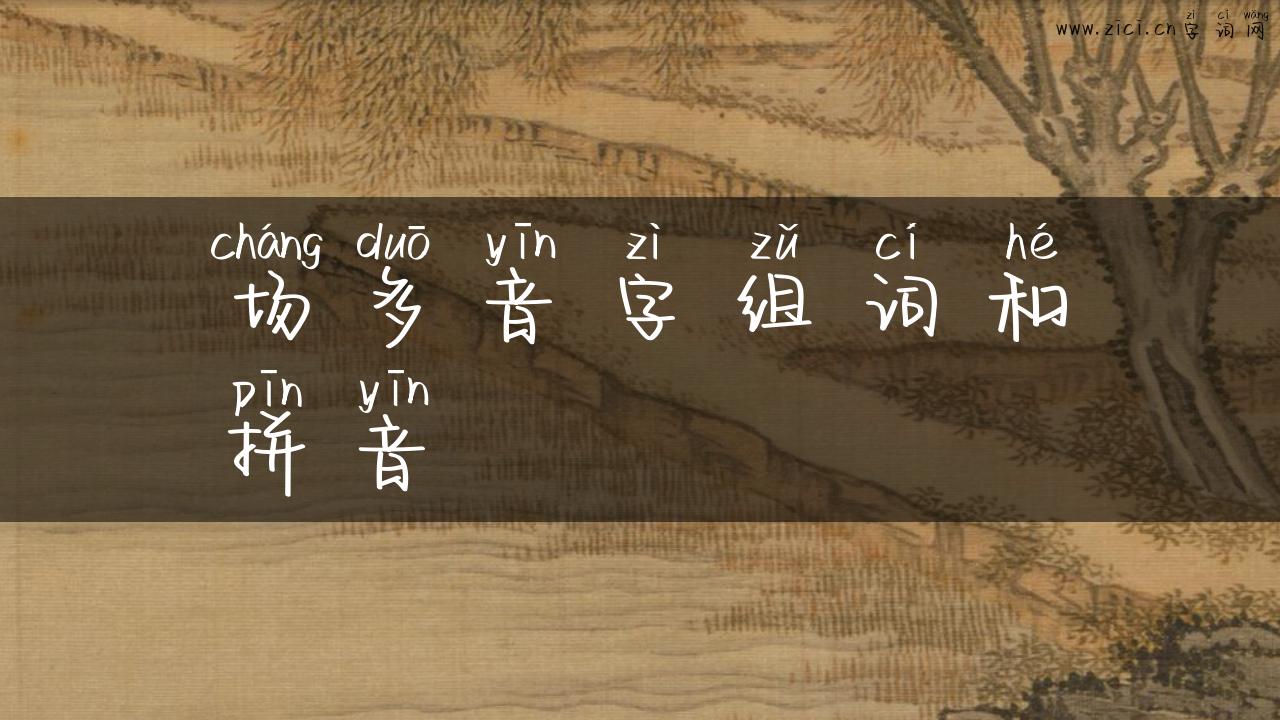 www.zici.cn zì cí wǎng
字 词 网
cháng duō yīn zì zǔ cí hé
场 多 音 字 组 词 和
pīn yīn
拼 音